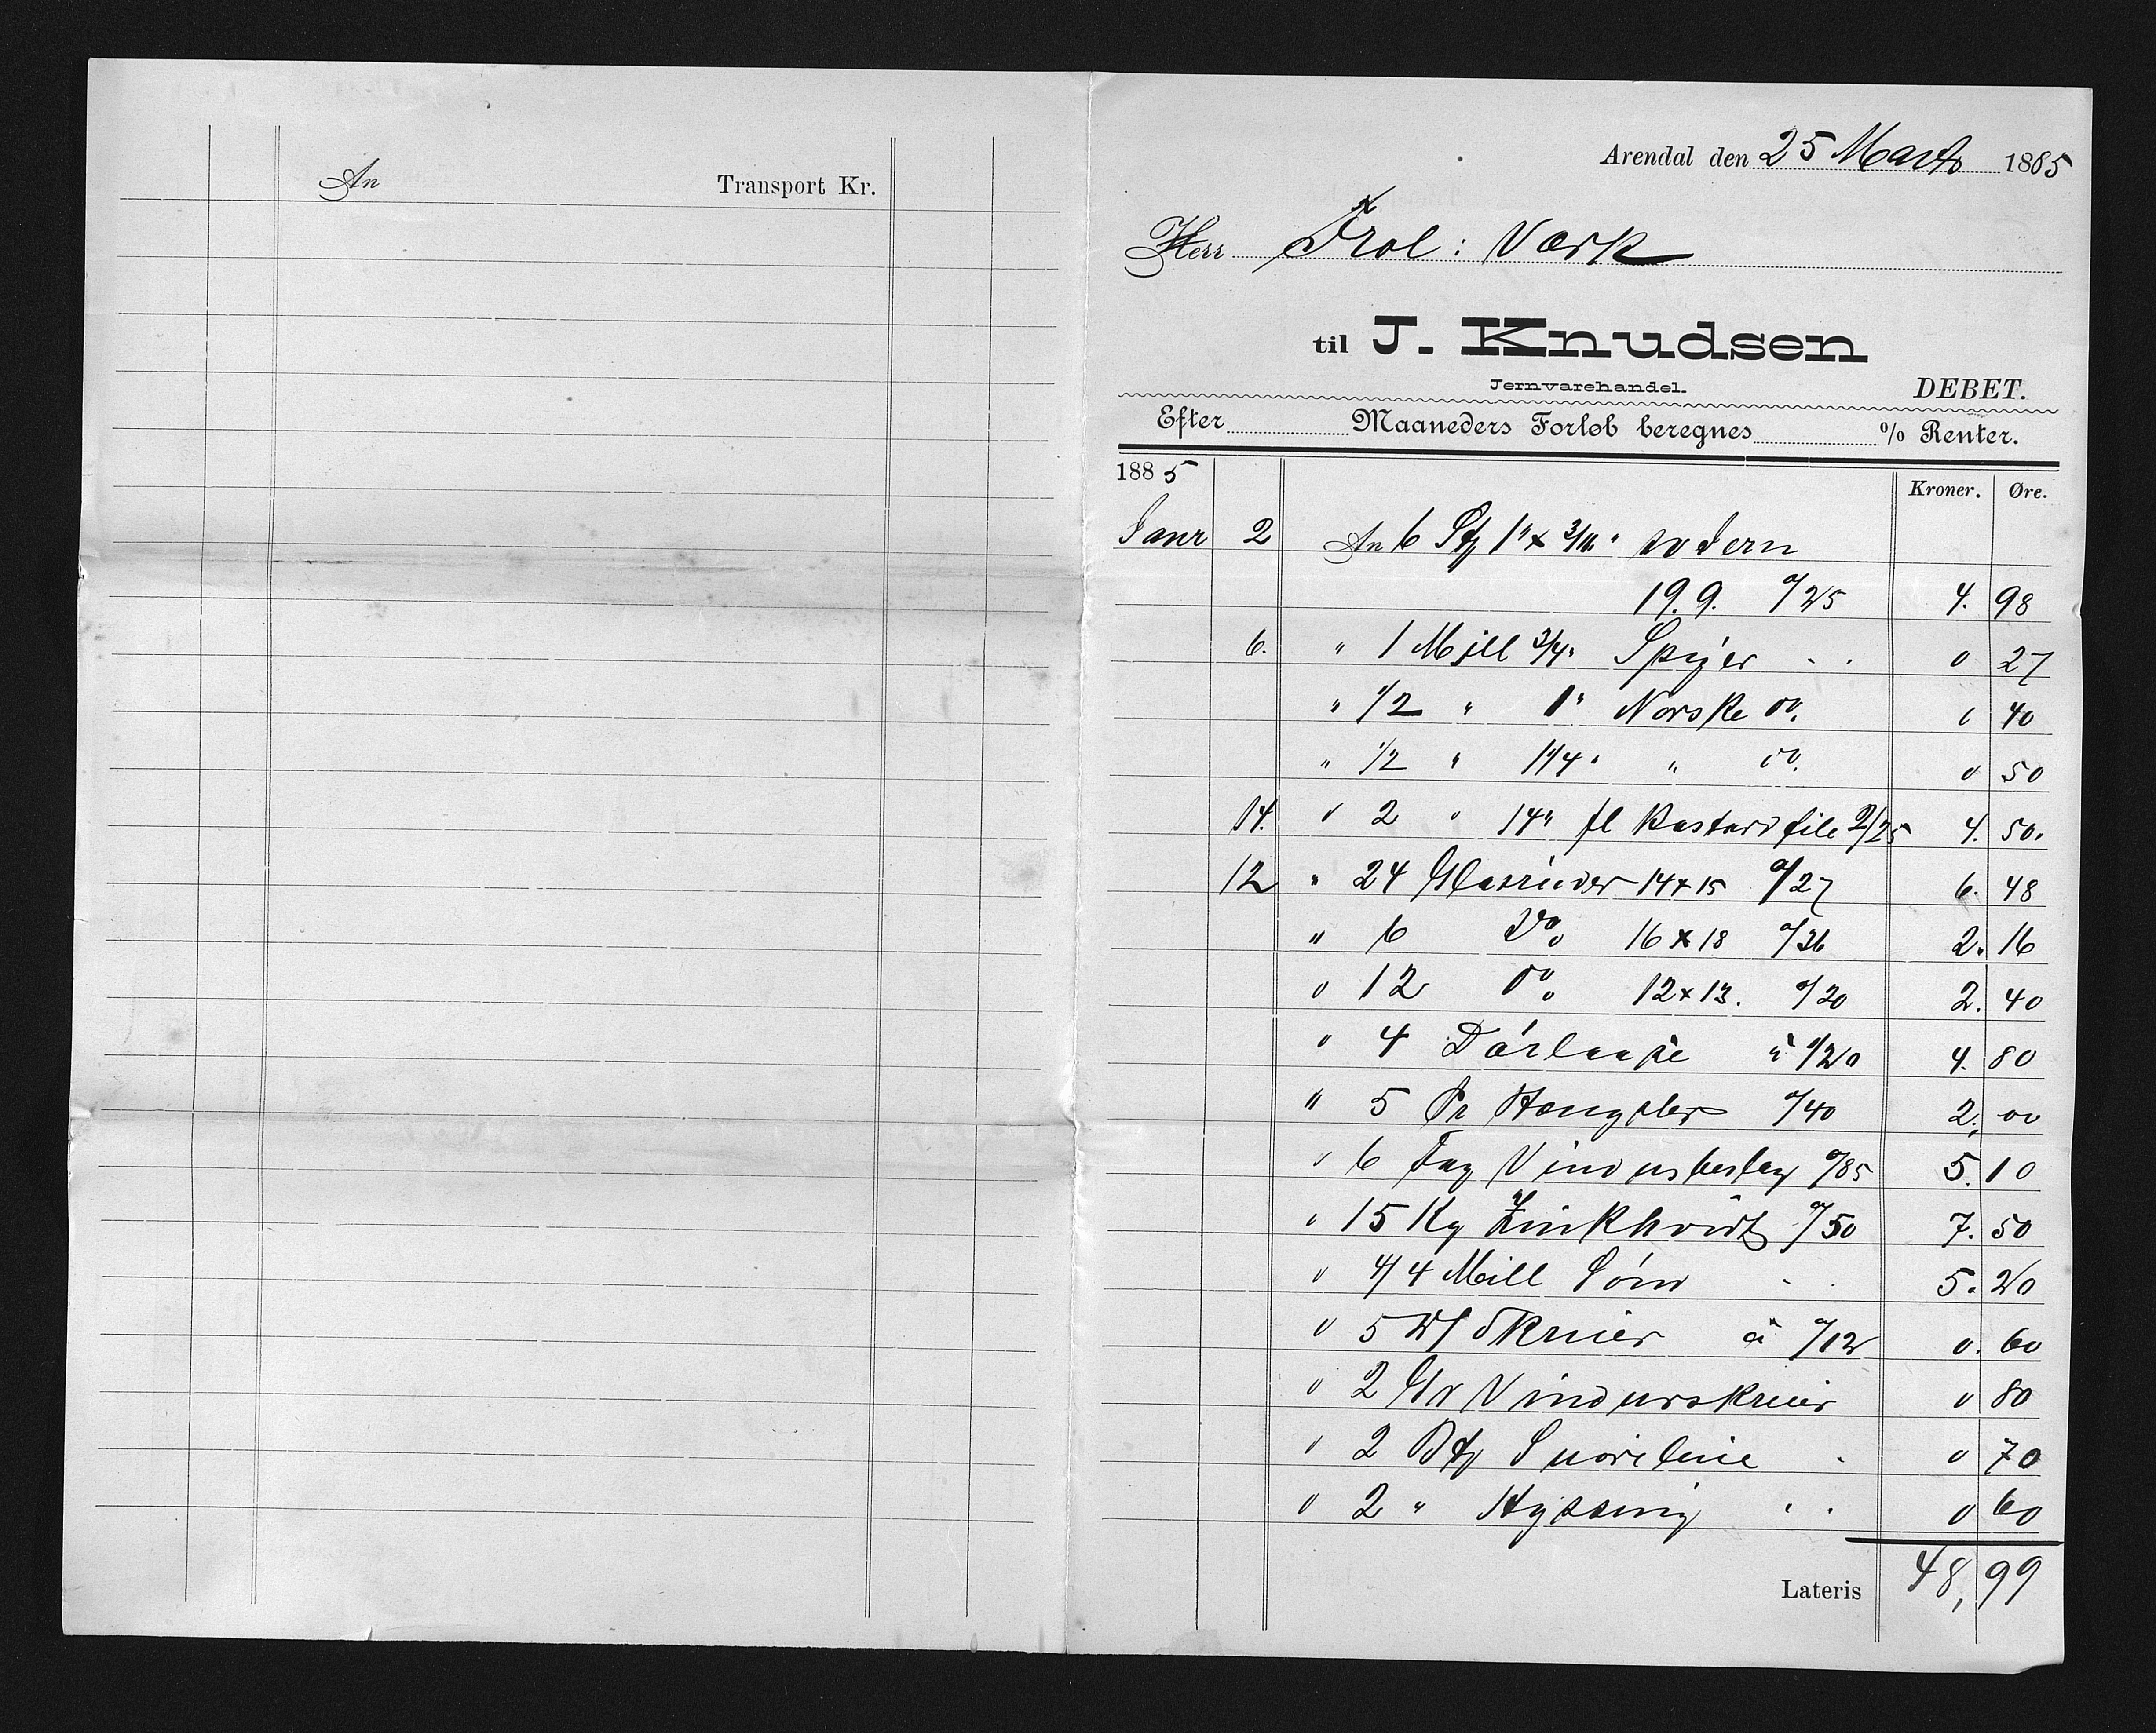 An Transport Kr.
Arendal den 25 Marts 1885
Herr Frol: Værk
til J. Knudsen
Jernvarehandel.
DEBET.
Efter Maaneders Forløb beregnes % Renter.
1885
Kroner. Øre.
Janr 2 An 6 Stg 1" x 3/16" Jern
19.9. a/25 4. 98
6. " 1 Mill 3/4" Spiger " " 0 27
" 1/2 " 1" Norske do. 0 40
" 1/2 " 1 1/4" " do. 0 50
14. " 2 " 14" fl Bastardfile 2/25 4. 50.
12 " 24 Glasruder 14x15 a/27 6. 48
" 6 Do. 16x18 a/36 2. 16
" 12 do. 12x13. a/20 2. 40
" 4 Dörlaase à 1/20 4. 80
" 5 Pr Hængsler a/40 2. 00
" 6 Fag Vindusbeslag a/85 5. 10
" 15 Kg Zinkhvidt a/50 7. 50
" 4/4 Mill Söm 5. 20
" 5 Skruer à a/12 0. 60
" 2 Gr Vindusskruer 0 80
" 2 Bt Snoreline 0 70
" 2 " Hyssing " " 0 60
Lateris 48,99